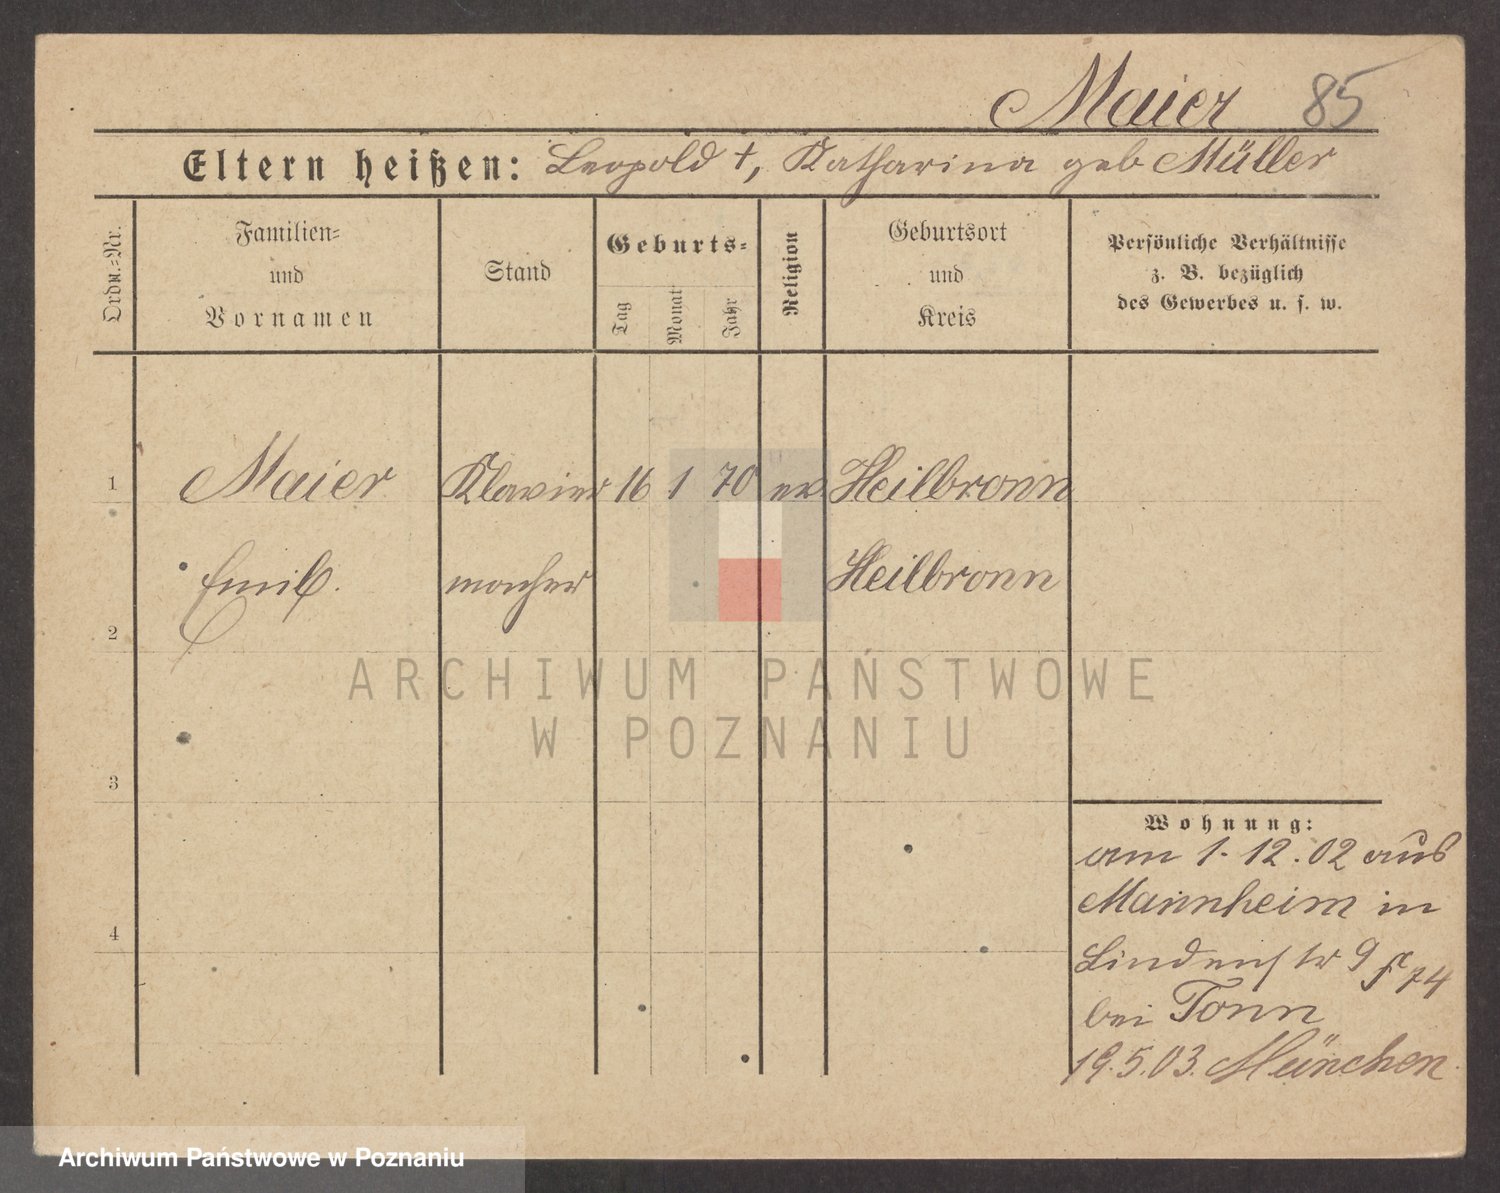 Maier 85
Eltern heißen: Leopold †, Katharina geb Müller
Ordn.-Nr.
Familien-
und
Vornamen
Stand
Geburts-
Tag
Monat
Jahr
Religion
Geburtsort
und
Kreis
Persönliche Verhältnisse
z. B. bezüglich
des Gewerbes u. s. w.
1 Maier Klavier 16 1 70 ev Heilbronn
Emil. macher Heilbronn
2
ARCHIWUM PAŃSTWOWE
W POZNANIU
3
Wohnung:
am 1.12.02 aus
Mannheim in
4
Lindenstr 9 f 74
bei Tonn
19.5.03. München
Archiwum Państwowe w Poznaniu